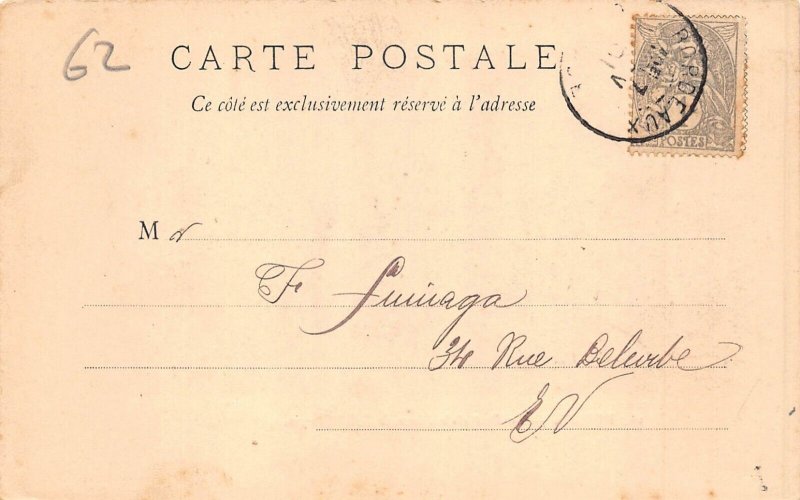 62
CARTE POSTALE
Ce côté est exclusivement réservé à l'adresse
BORDEAUX
POSTES
Mr
F
34 Rue
EV